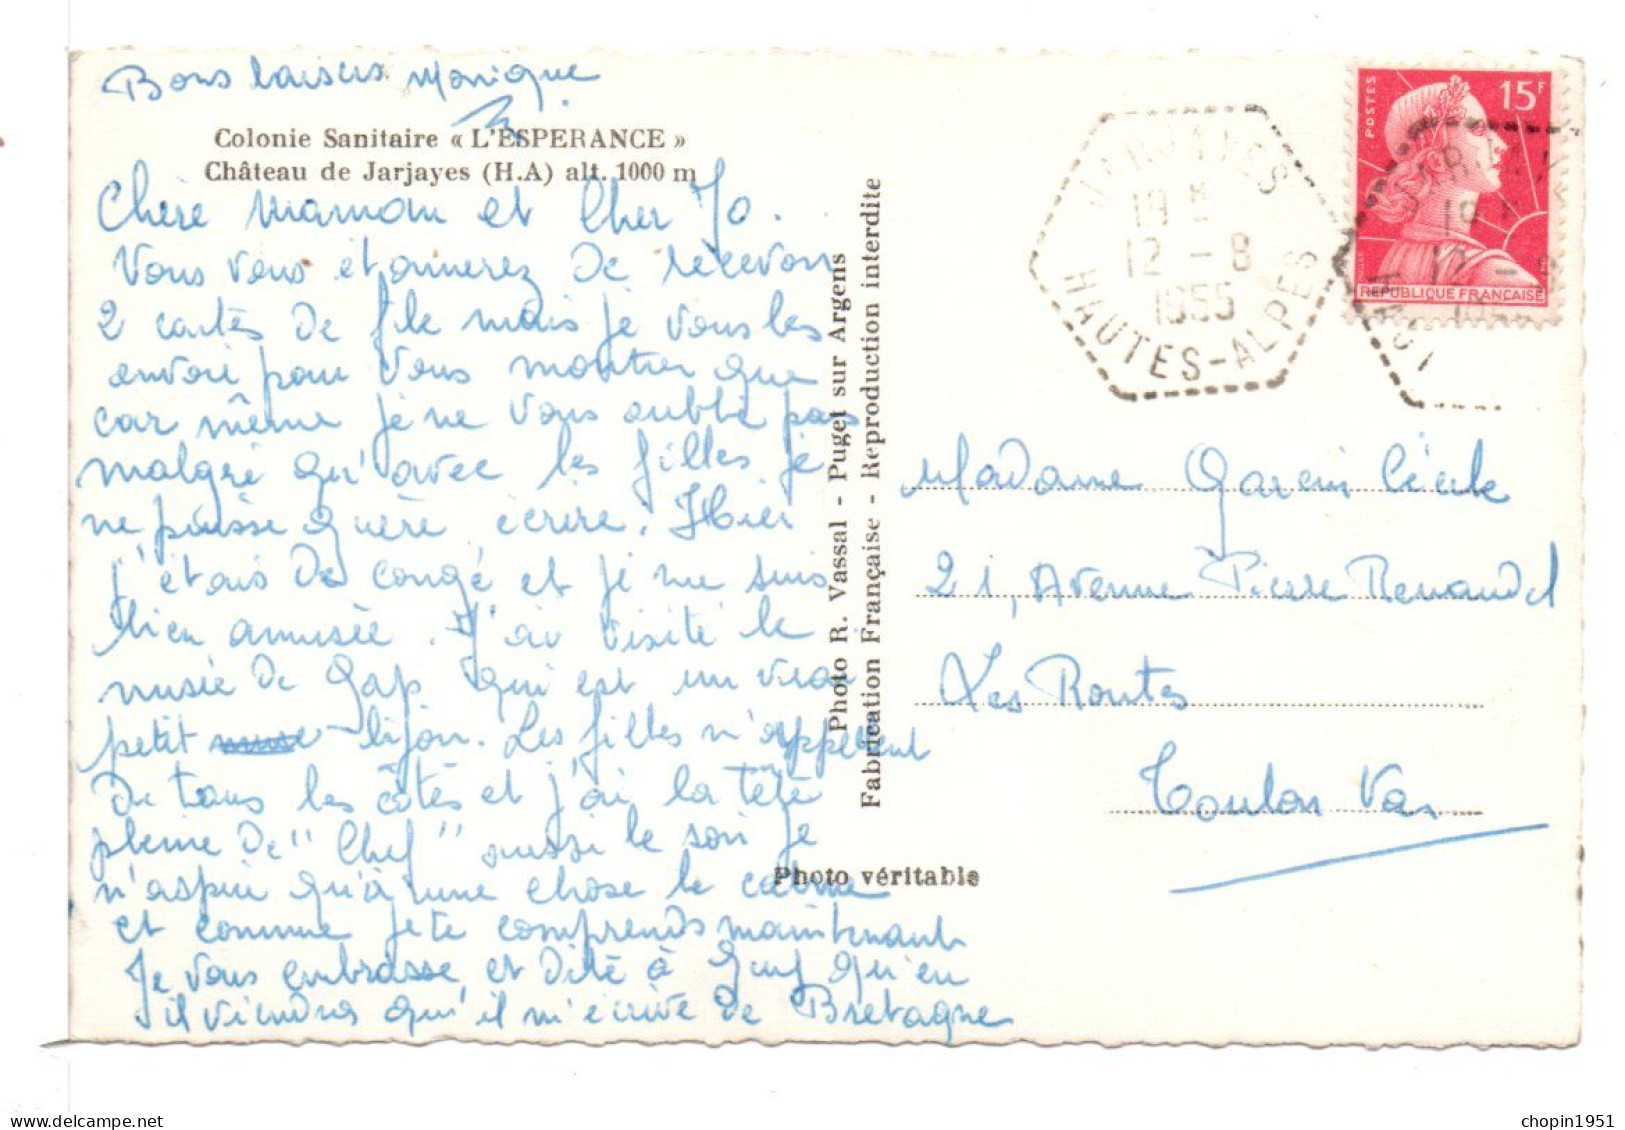 Bons baisers Monique
Colonie Sanitaire « L'ESPERANCE »
Château de Jarjayes (H.A) alt. 1000 m
Chère maman et Cher Jo.
Vous vous étonnerez de recevoir
2 cartes de file mais je vous les
envoie pour vous montrer que
car même je ne vous oublie pas
malgré qu'avec les filles je
ne puisse guère écrire. Hier
j'étais de congé et je me suis
bien amusée. J'ai visité le
musée de Gap qui est un vrai
petit bijou. Les filles m'appellent
de tous les côtés et j'ai la tête
pleine de "Chef" aussi le soir je
n'aspire qu'à une chose le calme
et comme je te comprends maintenant
Je vous embrasse et dite à qu'en
il viendra qu'il m'écrive de Bretagne
Photo R. Vassal - Puget sur Argens
Fabrication Française - Reproduction interdite
Photo véritable
JARJAYES
19 H
12 - 8
1955
HAUTES-ALPES
POSTES
15F
REPUBLIQUE FRANÇAISE
JARJAYES
19 H
12 - 8
Madame Garcin Cécile
21, Avenue Pierre Renaudel
Les Routes
Toulon Var
delcampe.net
chopin1951